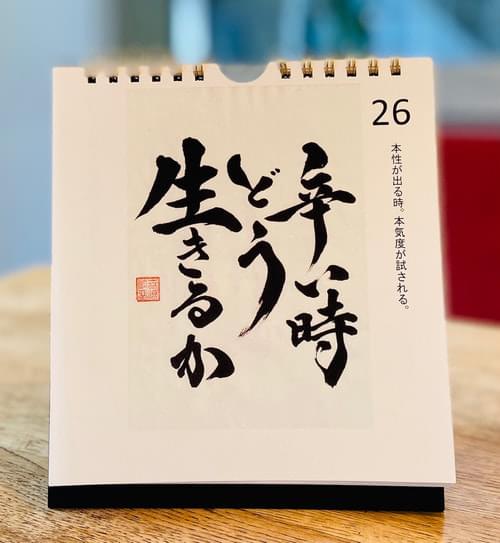 26
本性が出る時。本気度が試される。
辛い時
どう
生きるか